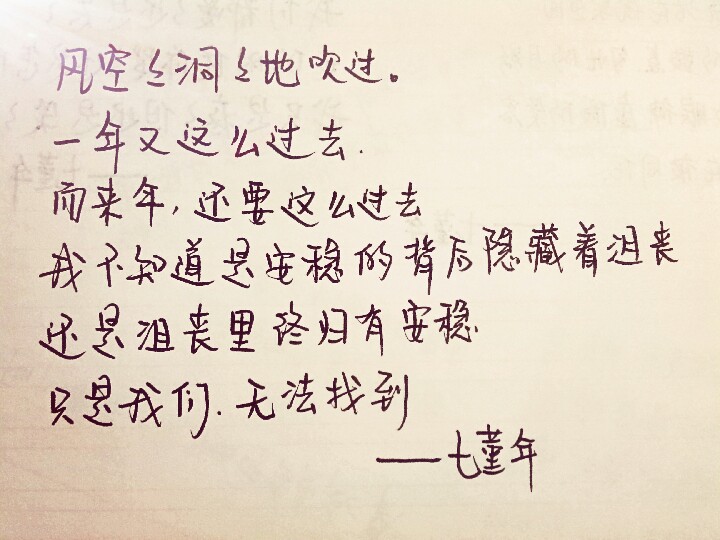 风空々洞々地吹过。
一年又这么过去.
而来年,还要这么过去
我不知道是安稳的背后隐藏着沮丧
还是沮丧里终归有安稳
只是我们.无法找到
——七堇年